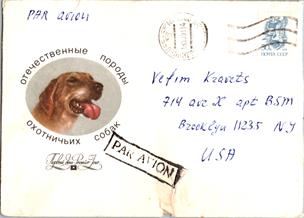 PAR AVION
отечественные породы
охотничьих собак
ПОЧТА СССР
Yefim Kravets
714 ave X apt BSM
Brooklyn 11235 N.Y
USA
PAR AVION